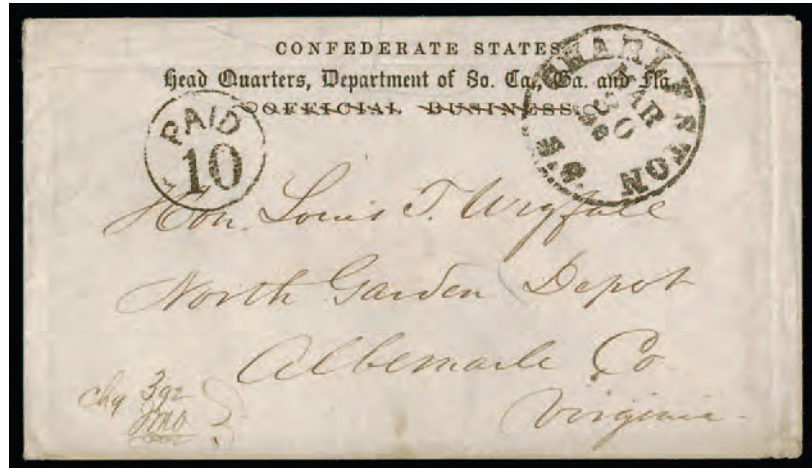 CONFEDERATE STATES
Head Quarters, Department of So. Ca., Ga. and Fla.
OFFICIAL BUSINESS
CHARLESTON S.C.
MAR
30
PAID
10
Hon. Louis T. Wigfall
North Garden Depot
Albemarle Co
Virginia
chg